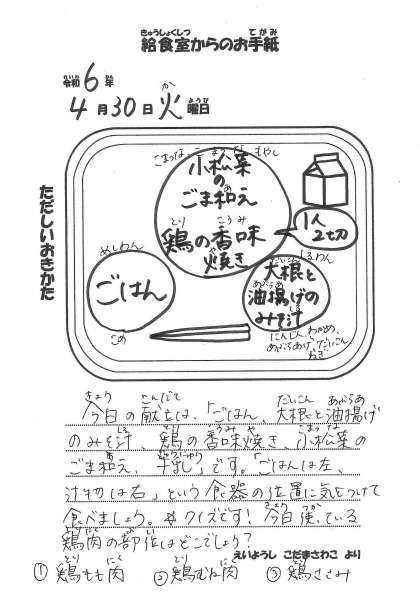 給食室からのお手紙
きゅうしょくしつ
てがみ
令和6年
れいわ
ねん
4月30日火曜日
か
ようび
ただしいおきかた
小松菜
の
ごま和え
あ
鶏の香味
とり
こうみ
焼き
や
1人
2切
めしわん
ごはん
こめ
しるわん
大根と
だいこん
油揚げの
あぶらあ
みそ汁
にんじん、わかめ、
あぶらあげ、だいこん
ねぎ
きょう
こんだて
だいこん
あぶらあ
今日の献立は、「ごはん、大根と油揚げ
のみそ汁、鶏の香味焼き、小松菜の
ごま和え、牛乳」です。「ごはんは左、
汁物は右」という食器の位置に気をつけて
食べましょう。☆クイズです!今日使っている
鶏肉の部位はどこでしょう?
えいようし こだまさわこ より
①鶏もも肉 ②鶏むね肉 ③鶏ささみ